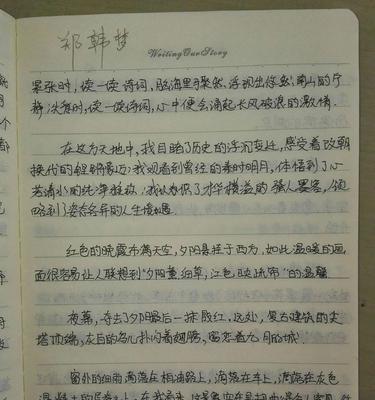 郑韩梦
Writing Our Story
紧张时，读一读诗词，脑海里聚然浮现出悠然南山的宁
静；失落时，读一读诗词，心中便会涌起长风破浪的激情。
在这方天地中，我目睹了历史的浮沉变迁，感受着改朝
换代的；我观看到曾经的秦时明月，体悟到了心
若清水的纯净；我认识了才华横溢的骚人墨客，领
略到姿态各异的人生境遇
红色的晚霞布满天空，夕阳悬挂于西方，如此温暖的画
面很容易让人联想到“夕阳薰细草，江色映疏帘”的温馨
夜幕，夺去了夕阳最后一抹殷红，远处，复古建筑的尖
塔顶端，灰白的鸟儿扑闪着翅膀，留恋着九月的城
窗外的细雨滴落在柏油路上，滴落在车上，滴落在灰色